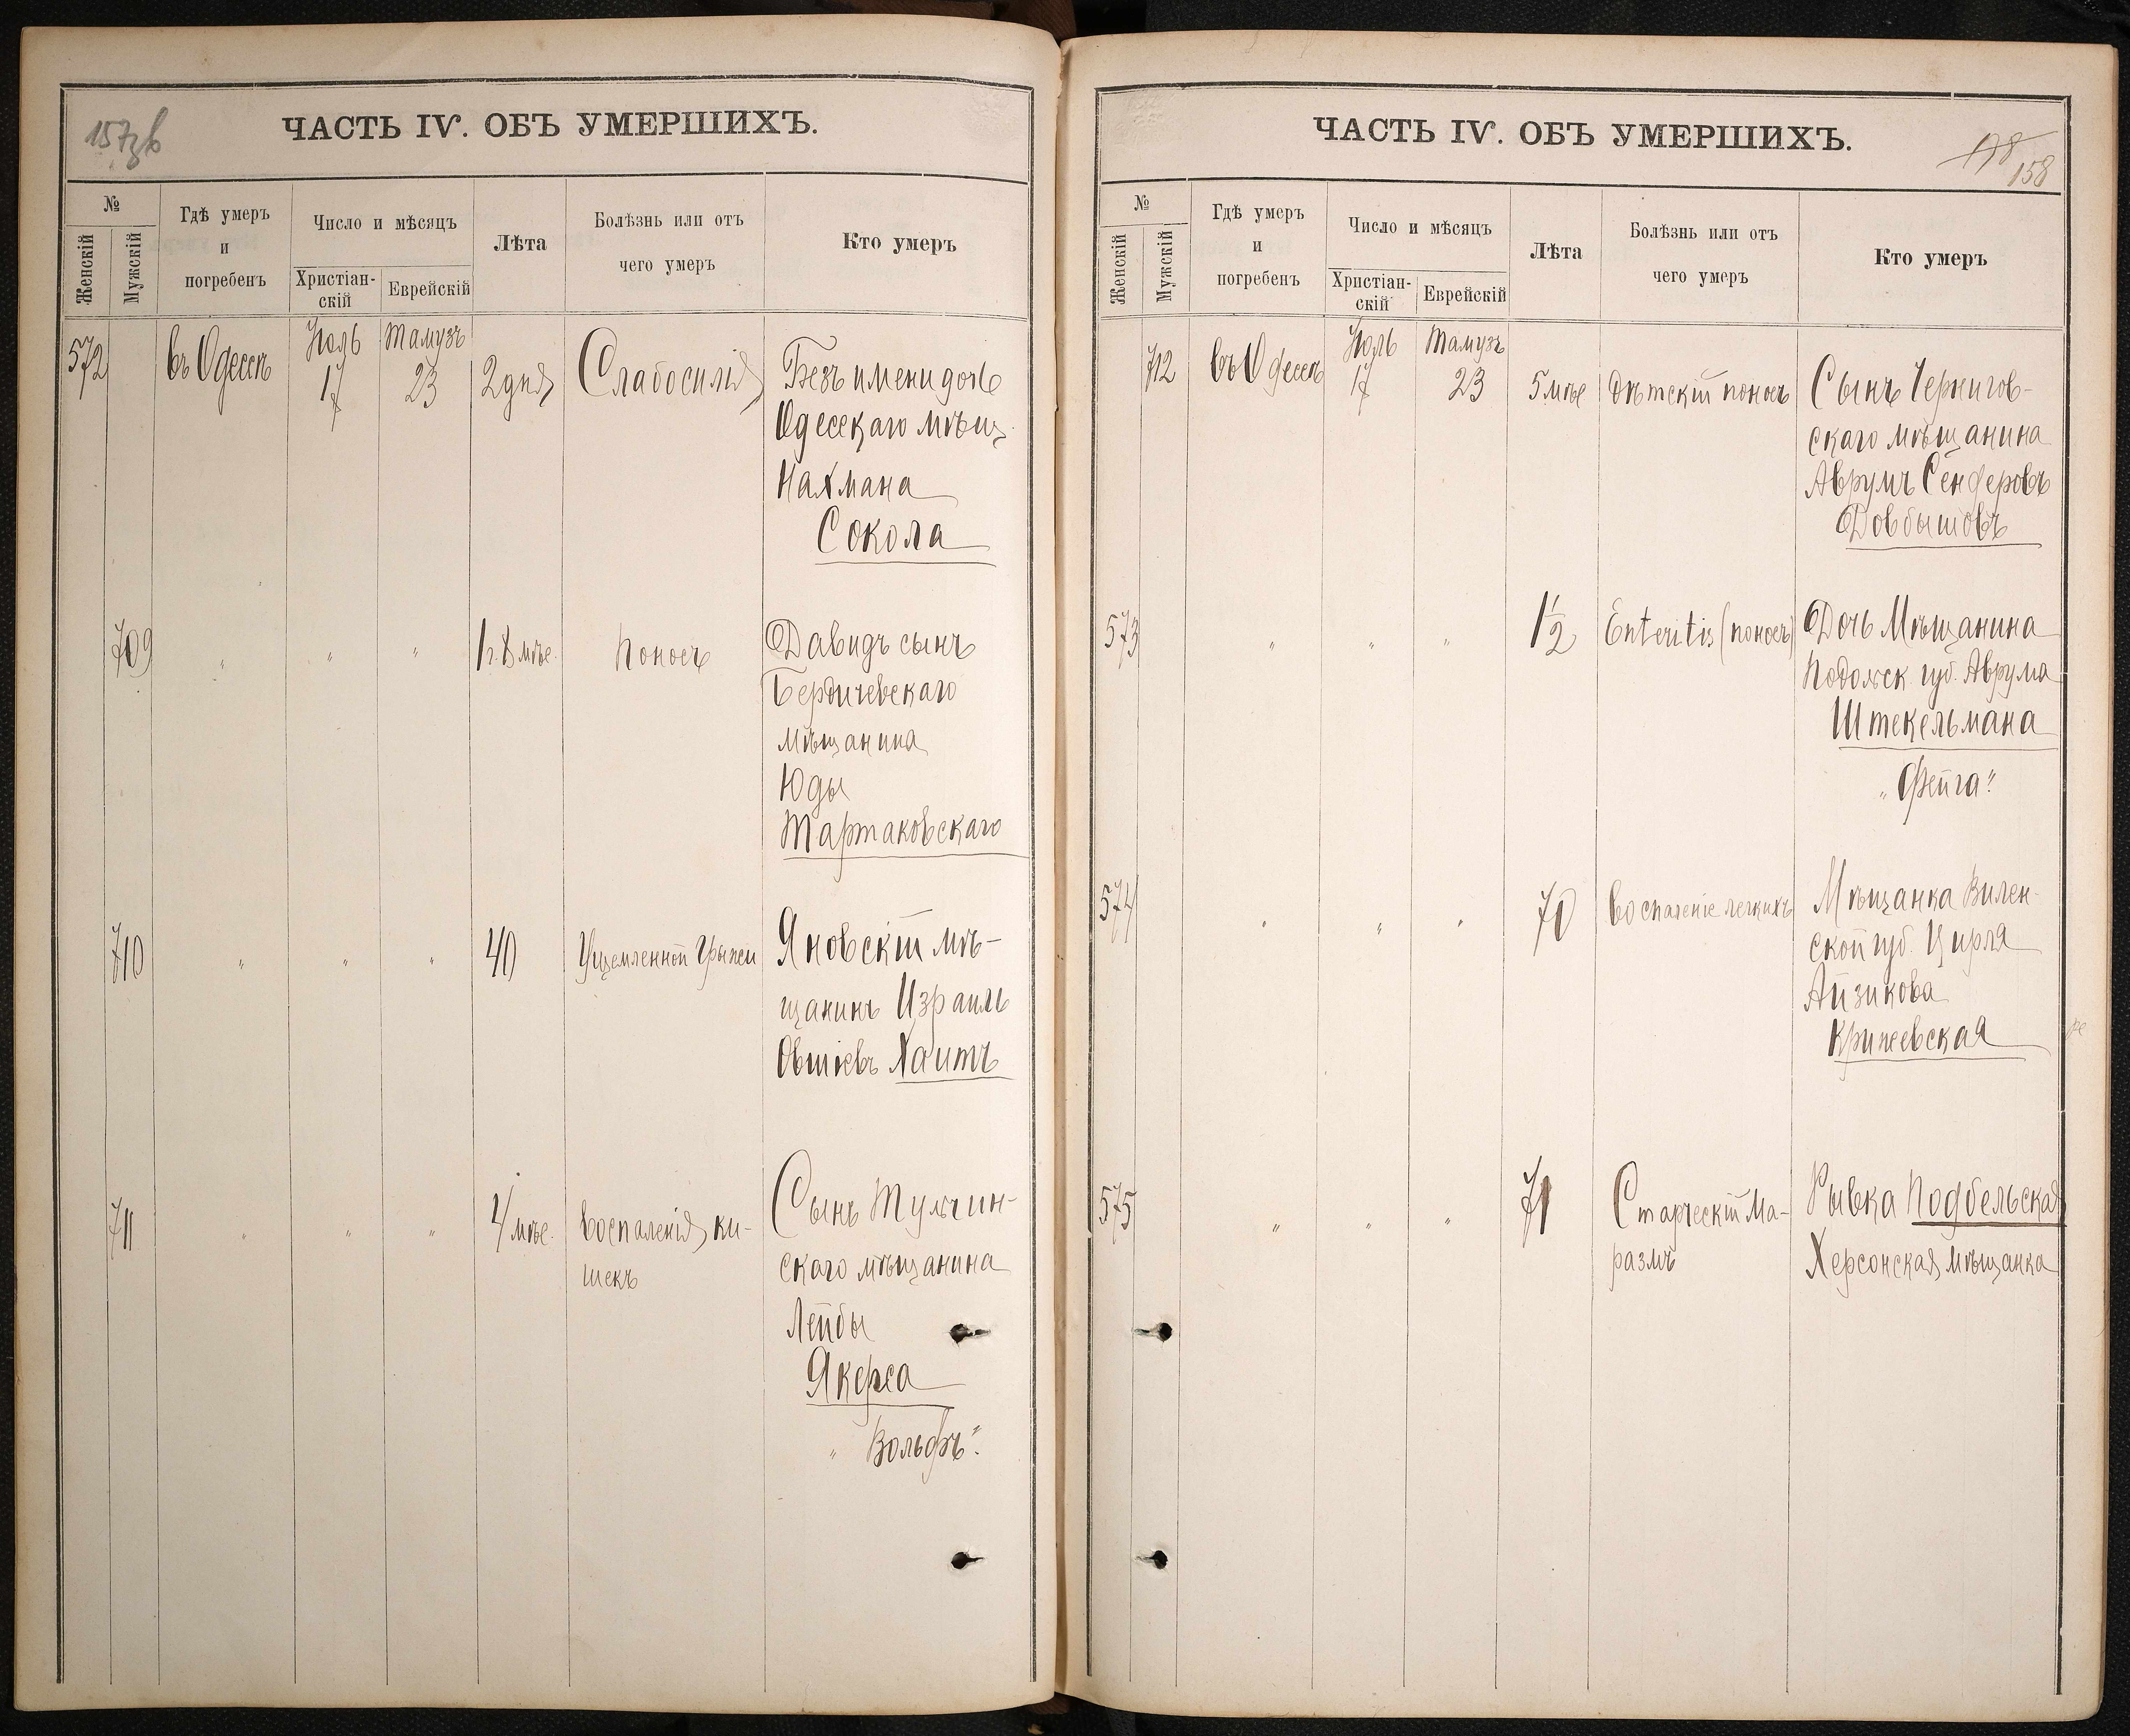 157 об
ЧАСТЬ IV. ОБЪ УМЕРШИХЪ.
№
Женскій
Мужскій
Гдѣ умеръ
и
погребенъ
Число и мѣсяцъ
Христіан-
скій
Еврейскій
Лѣта
Болѣзнь или отъ
чего умеръ
Кто умеръ
572 въ Одессѣ Іюль 17 Тамузъ 23 2 дня Слабосилія Безъ имени дочь
Одесскаго мѣщ.
Нахмана
Сокола
709 " " " 1 г. 8 мѣс. Поносъ Давидъ сынъ
Бердичевскаго
мѣщанина
Юды
Тартаковскаго
710 " " " 40 Ущемленной грыжи Яновскій мѣ-
щанинъ Израиль
Овшіевъ Хаитъ
711 " " " 4 мѣс. Воспаленія ки- Сынъ Тульчин-
шекъ скаго мѣщанина
Лейбы
"Вольфъ".
ЧАСТЬ IV. ОБЪ УМЕРШИХЪ.
158
№
Женскій
Мужскій
Гдѣ умеръ
и
погребенъ
Число и мѣсяцъ
Христіан-
скій
Еврейскій
Лѣта
Болѣзнь или отъ
чего умеръ
Кто умеръ
712 въ Одессѣ Іюль 17 Тамузъ 23 5 мѣс Дѣтскій поносъ Сынъ Чернигов-
скаго мѣщанина
Аврумъ Сендеровъ
Довбышовъ
573 " " " 1 1/2 Enteritis (поносъ) Дочь Мѣщанина
Подольск. губ. Аврума
Штекельмана
"Фейга"
574 " " " 70 Воспаленіе легкихъ Мѣщанка Вилен-
ской губ. Цирля
Айзикова
Крижевская
575 " " " 71 Старческій Ма- Рывка Подбельская
размъ Херсонская мѣщанка